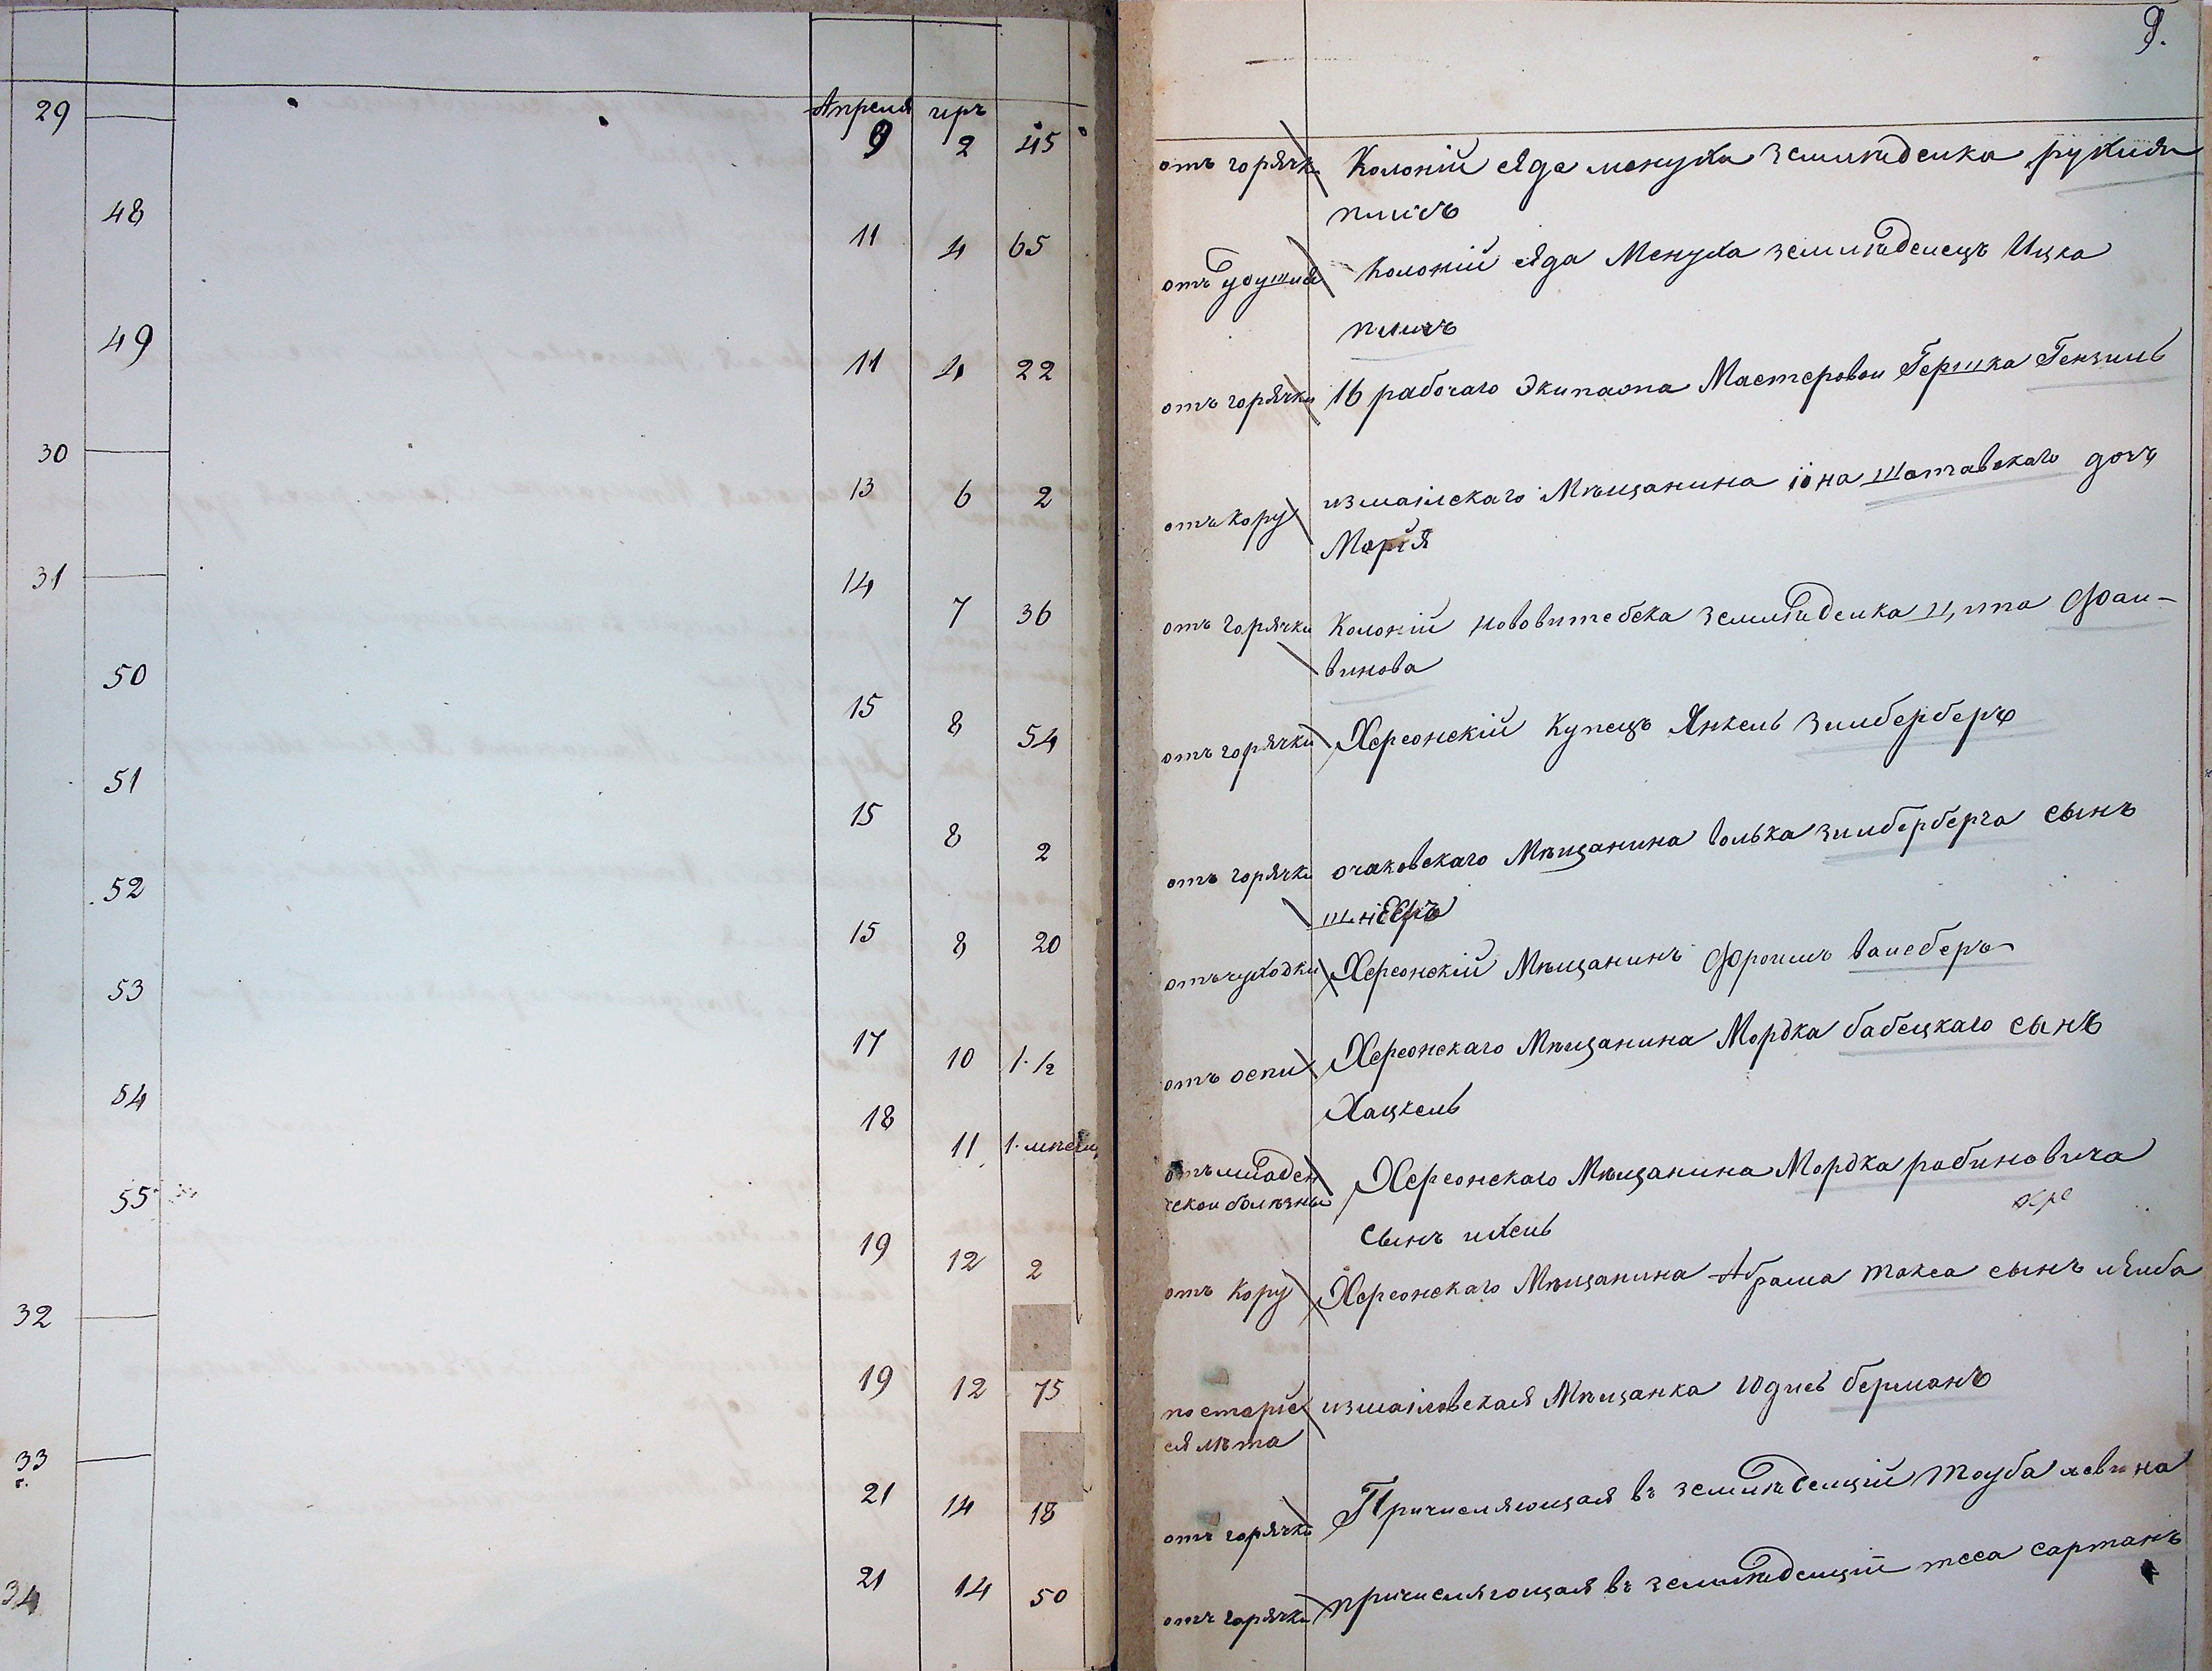 9.
Апреля иръ
29 — 9 2 45 отъ горячки Колоній Яде менуха земледелка рухля
пличъ
48 11 4 65 отъ удушия Колоній Яда Менуха земледелецъ Ицка
пличъ
49 11 4 22 отъ горячки 16 рабочаго Экипажа Мастеровои Гершка Гензиль
30 — 13 6 2 отъ кору измаилскаго Мѣщанина іона Шатавскаго дочъ
Марія
31 — 14 7 36 отъ горячки Колоній нововитебска земледелка ципа Фаи-
винова
50 15 8 54 отъ горячки Херсонскій Купецъ Янкель Зилберберъ
51 15 8 2 отъ горячки очаковскаго Мѣщанина волька зилберберга сынъ
шнееръ
52 15 8 20 отъ чуходки Херсонскій Мѣщанинъ Фроимъ ваисберъ
53 17 10 1 1/2 отъ оспи Херсонскаго Мѣщанина Мордка бабецкаго сынъ
Хацкель
54 18 11 1 мѣсяц отъ младен Херсонскаго Мѣщанина Мордка рабиновича
ческои болѣзны сынъ ихель
хере
55 19 12 2 отъ кору Херсонскаго Мѣщанина Абрама такса сынъ лейба
32 — 19 12 75 по старіе измаиловская Мѣщанка Юдись берманъ
ся лѣта
33 — 21 14 18 отъ горячки Причисляющая въ земледелцій тауба левина
34 21 14 50 отъ горячки причисляющая въ земледелцій теса сартанъ